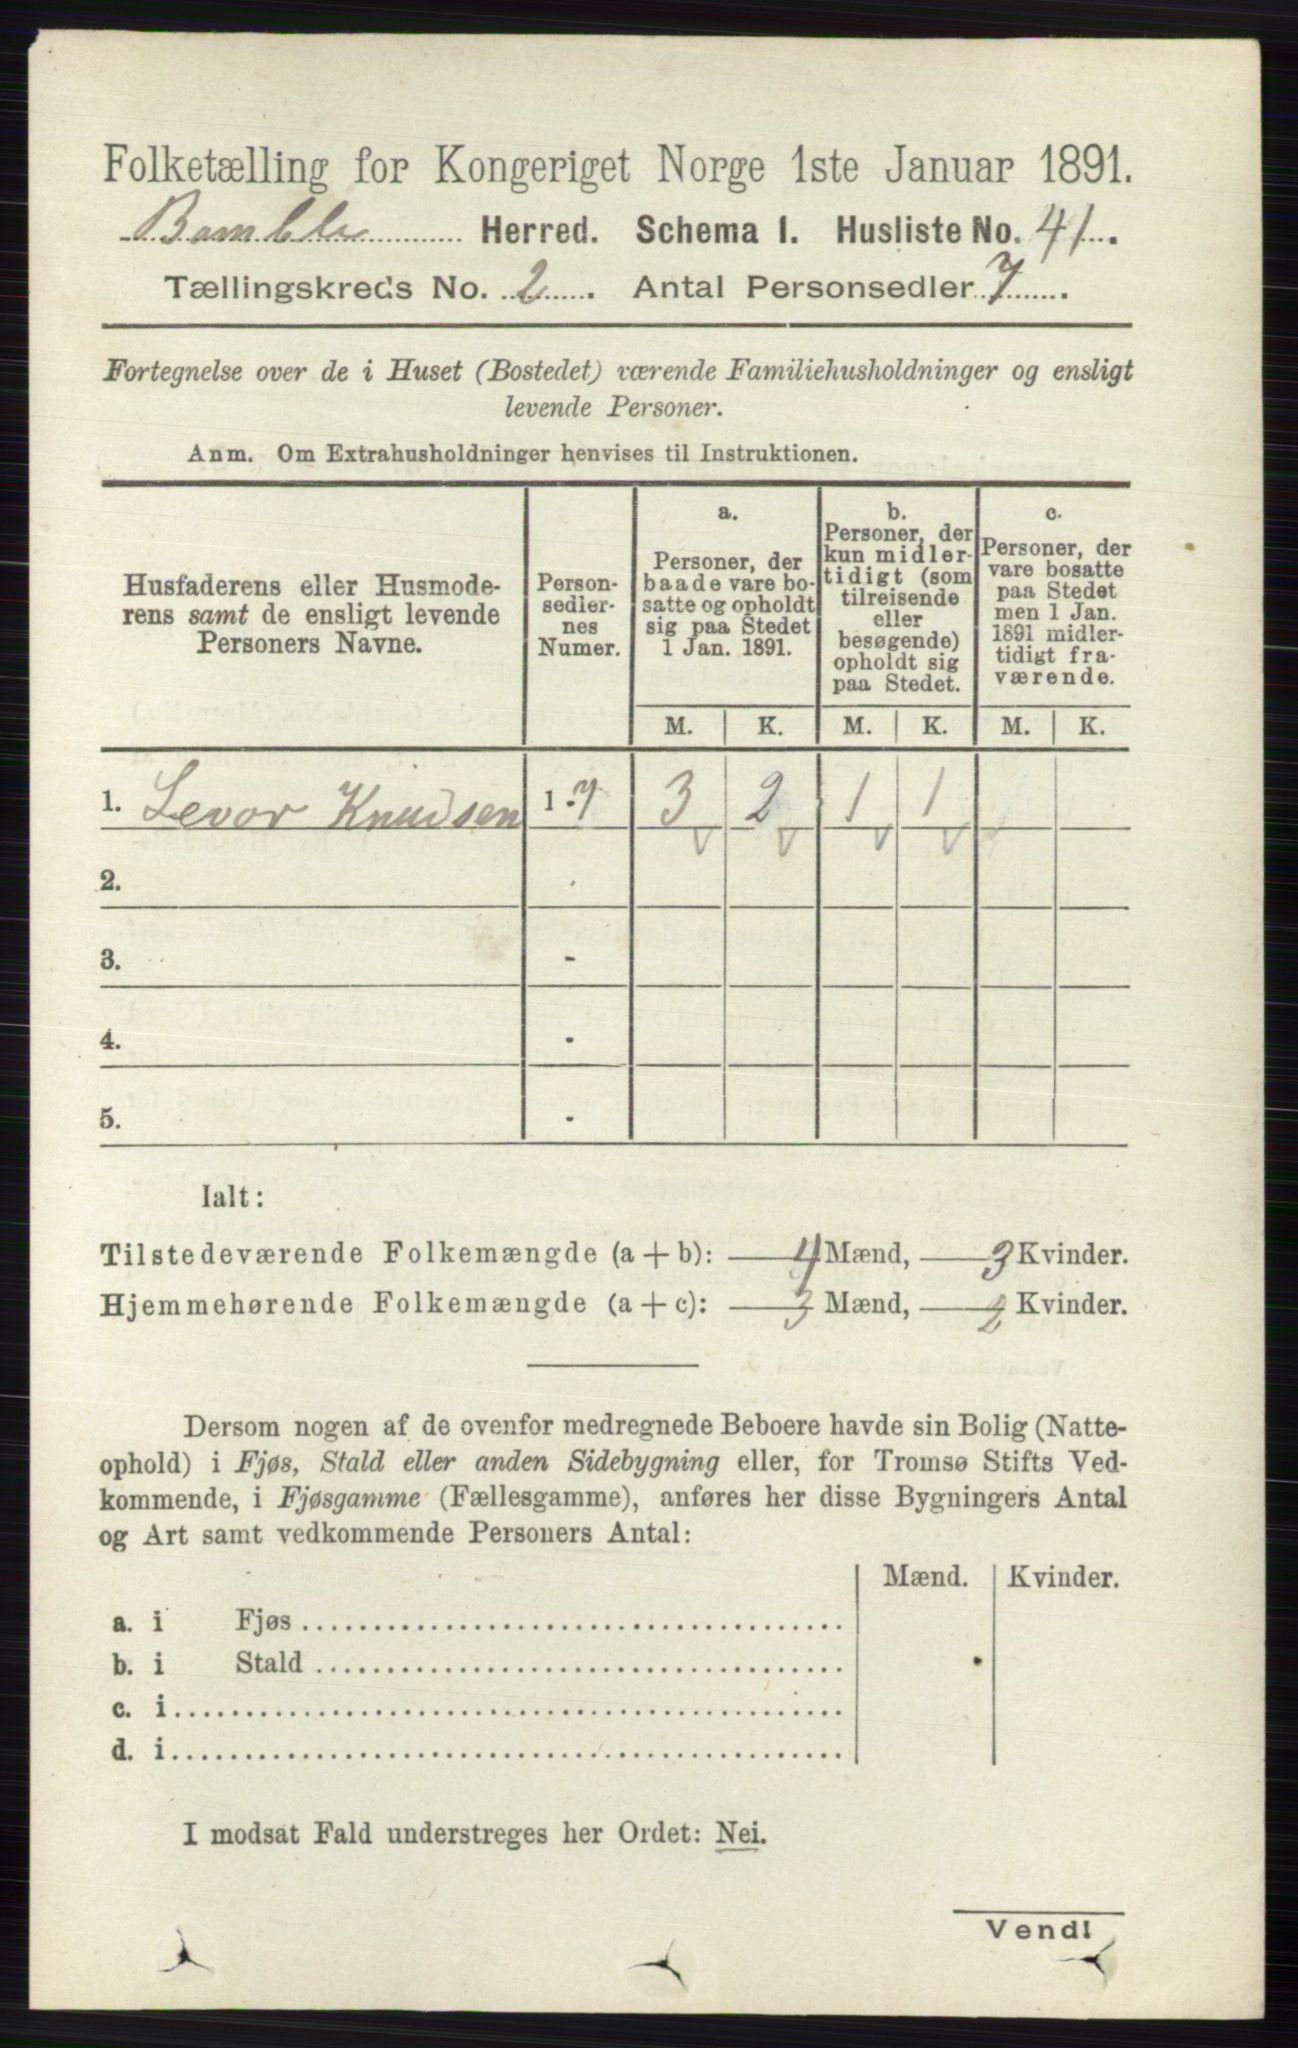 Folketælling for Kongeriget Norge 1ste Januar 1891.
Bamble Herred. Schema I. Husliste No. 41.
Tællingskreds No. 2. Antal Personsedler 7.
Fortegnelse over de i Huset (Bostedet) værende Familiehusholdninger og ensligt
levende Personer.
Anm. Om Extrahusholdninger henvises til Instruktionen.
Husfaderens eller Husmode-
rens samt de ensligt levende
Personers Navne.
Person-
sedler-
nes
Numer.
a.
Personer, der
baade vare bo-
satte og opholdt
sig paa Stedet
1 Jan. 1891.
b.
Personer, der
kun midler-
tidigt (som
tilreisende
eller
besøgende)
opholdt sig
paa Stedet.
c.
Personer, der
vare bosatte
paa Stedet
men 1 Jan.
1891 midler-
tidigt fra-
værende.
M. K. M. K. M. K.
1. Levor Knudsen 1-7 3 2 1 1
2.
3. -
4. -
5. -
Ialt:
Tilstedeværende Folkemængde (a + b): 4 Mænd, 3 Kvinder.
Hjemmehørende Folkemængde (a + c): 3 Mænd, 2 Kvinder.
Dersom nogen af de ovenfor medregnede Beboere havde sin Bolig (Natte-
ophold) i Fjøs, Stald eller anden Sidebygning eller, for Tromsø Stifts Ved-
kommende, i Fjøsgamme (Fællesgamme), anføres her disse Bygningers Antal
og Art samt vedkommende Personers Antal:
Mænd. Kvinder.
a. i Fjøs
b. i Stald
c. i
d. i
I modsat Fald understreges her Ordet: Nei.
Vend!